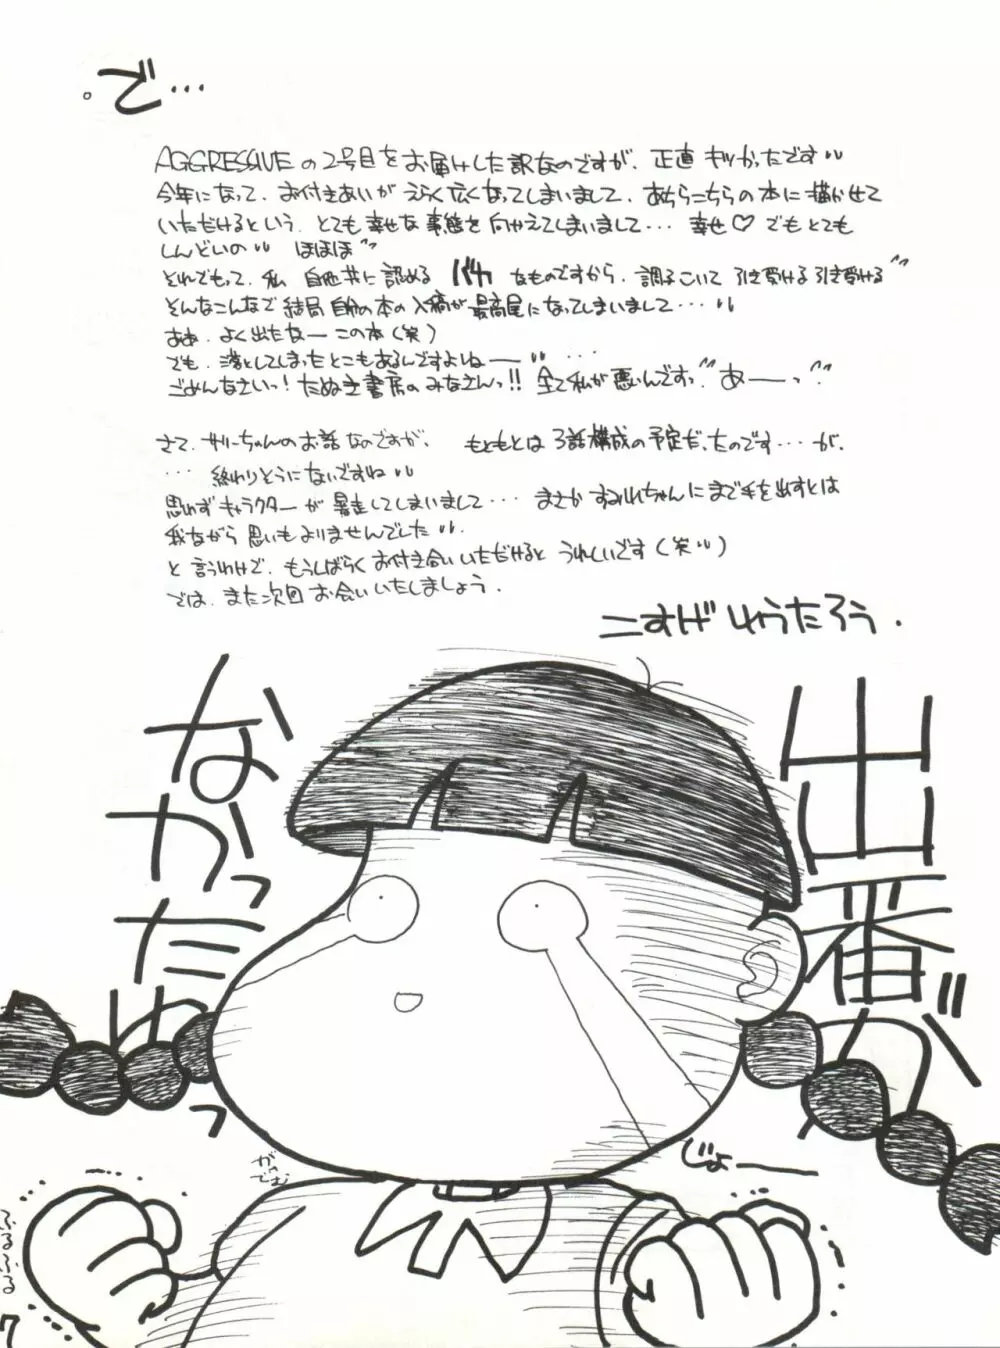 。で…
AGGRESSIVEの2号目をお届けした訳なのですが、正直キツかったです〃
今年になって、お付きあいがえらく広くなってしまいまして、あちらこちらの本に描かせて
いただけるという、とても幸せな事態を向かえてしまいまして… 幸せ♡でもとても
しんどいの〃 ほほほ〃
それでもって、私 自他共に認める バカ なものですから、調子こいて引き受ける引き受ける〃
そんなこんなで結局自分の本の入稿が最高尾になってしまいまして…〃
ああ、よく出たなーこの本(笑)
でも、落としてしまったとこもあるんですよねー〃…
ごめんなさいっ!たぬき書房のみなさんっ!!全て私が悪いんですっ〃あーっ〃
さて、サリーちゃんのお話なのですが、もともとは3話構成の予定だったのです…が、
… 終わりそうにないですね〃
思わずキャラクターが暴走してしまいまして… まさかすみれちゃんにまで手を出すとは
我ながら思いもよりませんでした〃.
と言うわけで、もうしばらくお付き合いいただけるとうれしいです(笑〃)
では、また次回お会いいたしましょう.
こすげしゅうたろう.
出番が
なかったゆっ
じょーー
がってむ
ぶるぶる
7